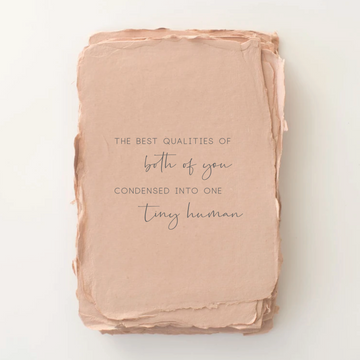 THE BEST QUALITIES OF
both of you
CONDENSED INTO ONE
tiny human